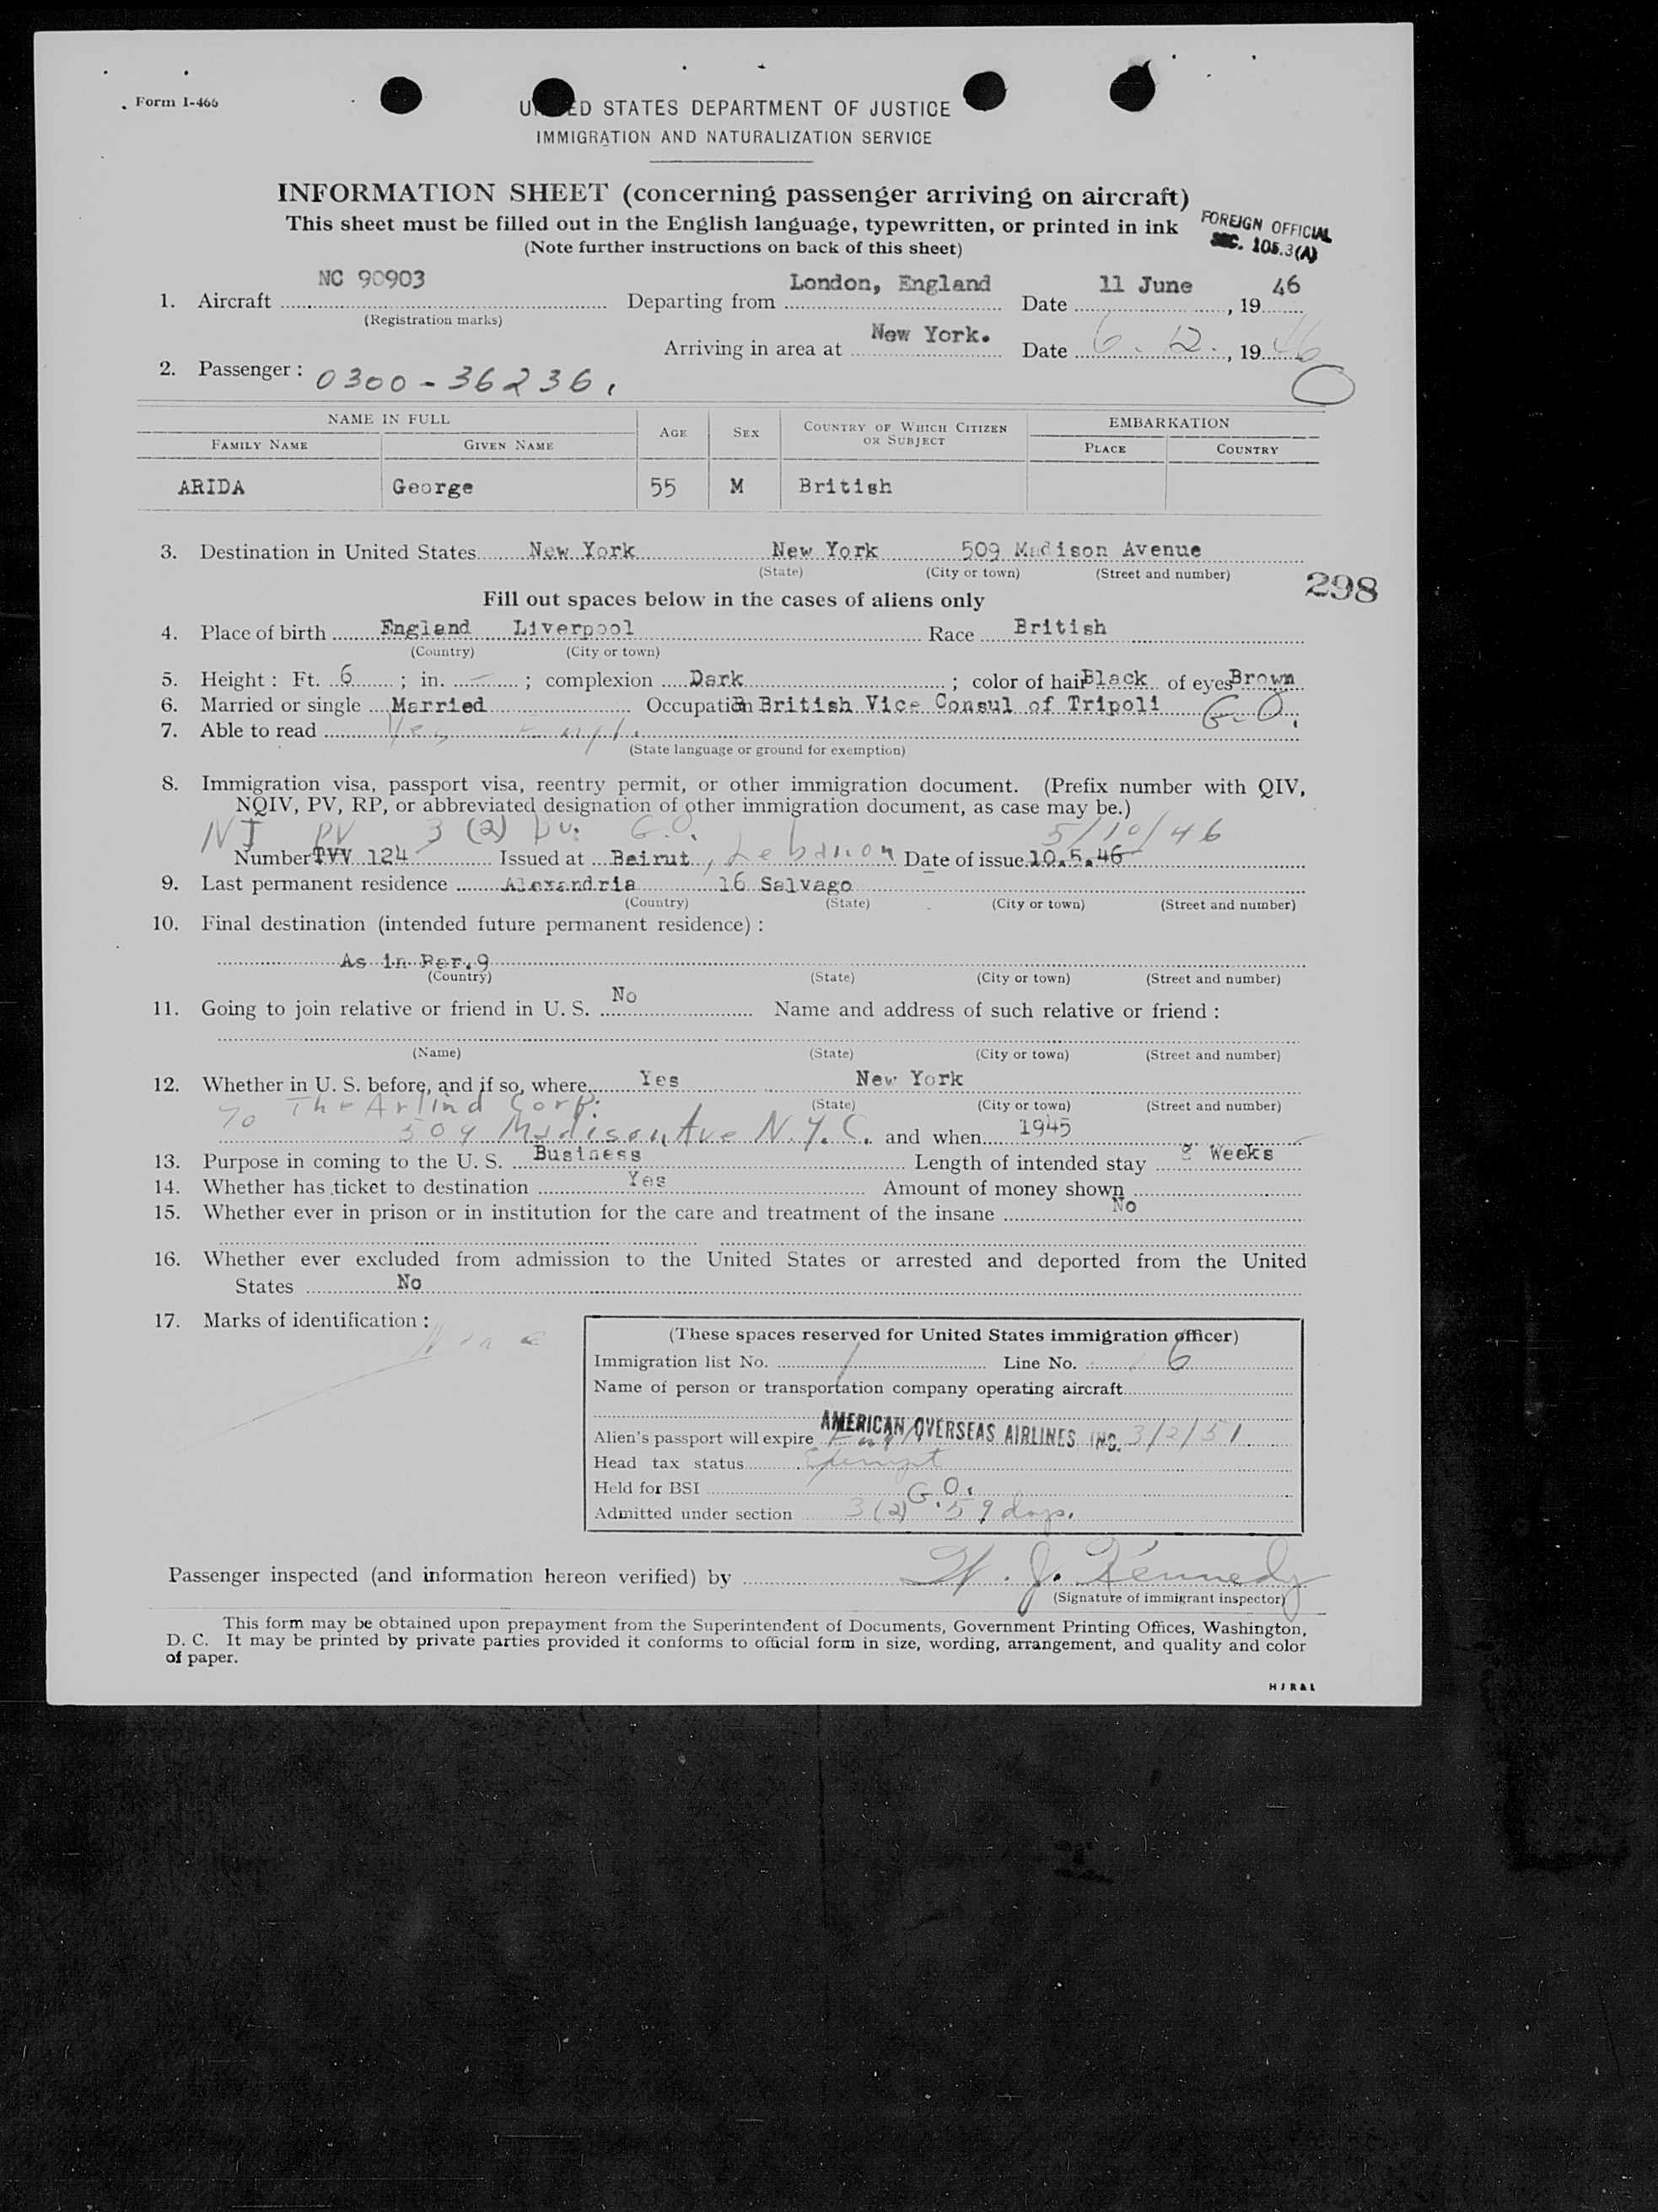 Form I-466
UNITED STATES DEPARTMENT OF JUSTICE
IMMIGRATION AND NATURALIZATION SERVICE
INFORMATION SHEET (concerning passenger arriving on aircraft)
This sheet must be filled out in the English language, typewritten, or printed in ink
(Note further instructions on back of this sheet)
FOREIGN OFFICIAL
SEC. 105.3(A)
1. Aircraft NC 90903 Departing from London, England Date 11 June, 1946
(Registration marks)
Arriving in area at New York. Date 6.12., 1946
2. Passenger: 0300-36236.
NAME IN FULL AGE SEX COUNTRY OF WHICH CITIZEN OR SUBJECT EMBARKATION
FAMILY NAME GIVEN NAME PLACE COUNTRY
ARIDA George 55 M British
3. Destination in United States New York New York 509 Madison Avenue
(State) (City or town) (Street and number)
298
Fill out spaces below in the cases of aliens only
4. Place of birth England Liverpool Race British
(Country) (City or town)
5. Height: Ft. 6; in. -; complexion Dark; color of hair Black of eyes Brown
6. Married or single Married Occupation British Vice Consul of Tripoli G.O.
7. Able to read Yes Engl.
(State language or ground for exemption)
8. Immigration visa, passport visa, reentry permit, or other immigration document. (Prefix number with QIV,
NQIV, PV, RP, or abbreviated designation of other immigration document, as case may be.)
PV 3 (2) G.O. 5/10/46
Number TVV 124 Issued at Beirut, Lebanon Date of issue 10.5.46
9. Last permanent residence Alexandria 16 Salvago
(Country) (State) (City or town) (Street and number)
10. Final destination (intended future permanent residence):
As in Par.9
(Country) (State) (City or town) (Street and number)
11. Going to join relative or friend in U. S. No Name and address of such relative or friend:
(Name) (State) (City or town) (Street and number)
12. Whether in U. S. before, and if so, where Yes New York
(State) (City or town) (Street and number)
% The Arlind Corp.
509 Madison Ave N.Y.C. and when 1945
13. Purpose in coming to the U. S. Business Length of intended stay 8 Weeks
14. Whether has ticket to destination Yes Amount of money shown
15. Whether ever in prison or in institution for the care and treatment of the insane No
16. Whether ever excluded from admission to the United States or arrested and deported from the United
States No
17. Marks of identification: None
(These spaces reserved for United States immigration officer)
Immigration list No. 1 Line No. 6
Name of person or transportation company operating aircraft
AMERICAN OVERSEAS AIRLINES INC.
Alien's passport will expire Engl 3/2/51
Head tax status Exempt
Held for BSI G.O.
Admitted under section 3(2) 59 days.
Passenger inspected (and information hereon verified) by W. J. Kennedy
(Signature of immigrant inspector)
This form may be obtained upon prepayment from the Superintendent of Documents, Government Printing Offices, Washington,
D. C. It may be printed by private parties provided it conforms to official form in size, wording, arrangement, and quality and color
of paper.
HJR&L